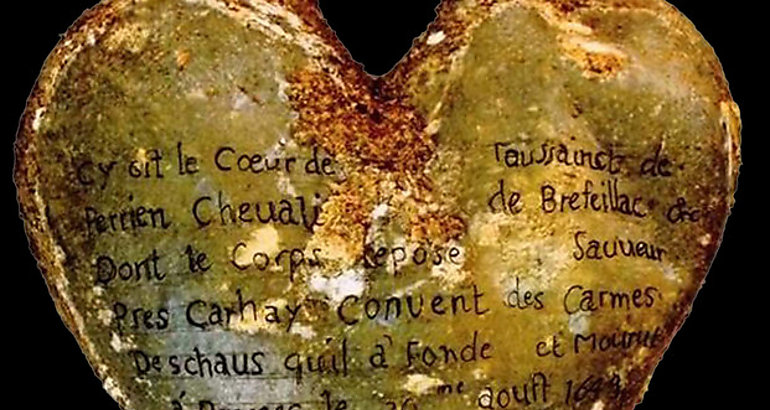 Cy git le Cœur de Toussainct de
Perrien Cheuali de Brefeillac &c
Dont le Corps repose Sauueur
Pres Carhay Convent des Carmes
Deschaus quil à Fondé et Mourut
à le me aoust 1649